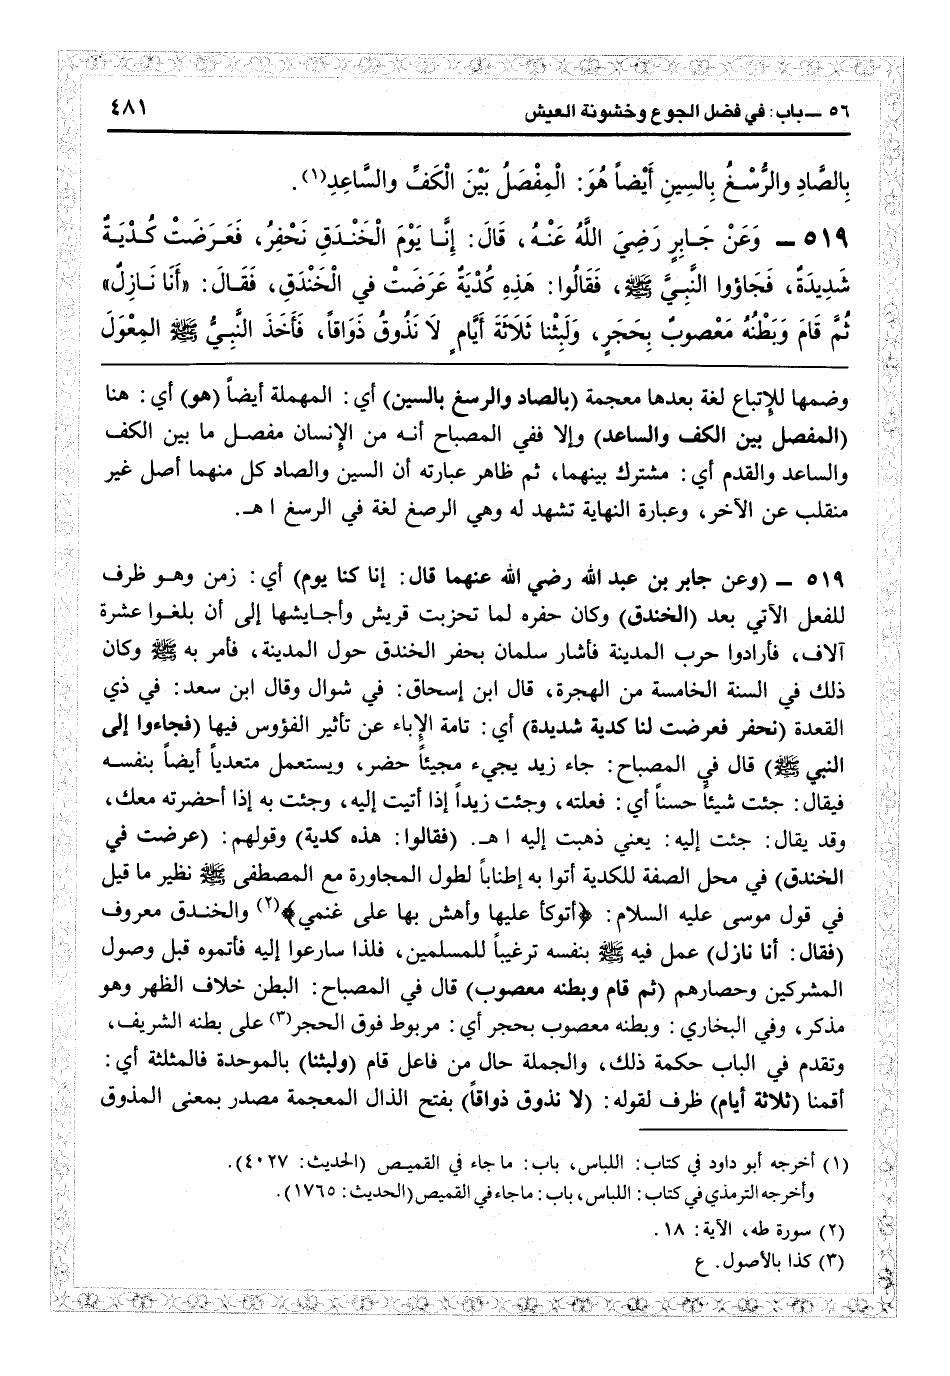 ٥٦ ـ باب: في فضل الجوع وخشونة العيش ٤٨١
بِالصَّادِ والرُّسْغُ بِالسِينِ أَيْضاً هُوَ: الْمِفْصَلُ بَيْنَ الْكَفِّ والسَّاعِدِ(١).
٥١٩ ـ وَعَنْ جَابِرٍ رَضِيَ اللَّهُ عَنْهُ، قَالَ: إِنَّا يَوْمَ الْخَنْدَقِ نَحْفِرُ، فَعَرَضَتْ كُدْيَةٌ
شَدِيدَةٌ، فَجَاؤوا النَّبِيَّ ﷺ، فَقَالُوا: هَذِهِ كُدْيَةٌ عَرَضَتْ في الْخَنْدَقِ، فَقَالَ: «أَنَا نَازِلٌ»
ثُمَّ قَامَ وَبَطْنُهُ مَعْصُوبٌ بِحَجَرٍ، وَلَبِثْنا ثَلَاثَةَ أَيَّامٍ لَا نَذُوقُ ذَوَاقاً، فَأَخَذَ النَّبِيُّ ﷺ المِعْوَلَ
وضمها للإتباع لغة بعدها معجمة (بالصاد والرسغ بالسين) أي: المهملة أيضاً (هو) أي: هنا
(المفصل بين الكف والساعد) وإلا ففي المصباح أنه من الإنسان مفصل ما بين الكف
والساعد والقدم أي: مشترك بينهما، ثم ظاهر عبارته أن السين والصاد كل منهما أصل غير
منقلب عن الآخر، وعبارة النهاية تشهد له وهي الرصغ لغة في الرسغ ا هـ.
٥١٩ ـ (وعن جابر بن عبد الله رضي الله عنهما قال: إنا كنا يوم) أي: زمن وهو ظرف
للفعل الآتي بعد (الخندق) وكان حفره لما تحزبت قريش وأجايشها إلى أن بلغوا عشرة
آلاف، فأرادوا حرب المدينة فأشار سلمان بحفر الخندق حول المدينة، فأمر به ﷺ وكان
ذلك في السنة الخامسة من الهجرة، قال ابن إسحاق: في شوال وقال ابن سعد: في ذي
القعدة (نحفر فعرضت لنا كدية شديدة) أي: تامة الإباء عن تأثير الفؤوس فيها (فجاءوا إلى
النبي ﷺ) قال في المصباح: جاء زيد يجيء مجيئاً حضر، ويستعمل متعدياً أيضاً بنفسه
فيقال: جئت شيئاً حسناً أي: فعلته، وجئت زيداً إذا أتيت إليه، وجئت به إذا أحضرته معك،
وقد يقال: جئت إليه: يعني ذهبت إليه ا هـ. (فقالوا: هذه كدية) وقولهم: (عرضت في
الخندق) في محل الصفة للكدية أتوا به إطناباً لطول المجاورة مع المصطفى ﷺ نظير ما قيل
في قول موسى عليه السلام: ﴿أتوكأ عليها وأهش بها على غنمي﴾(٢) والخندق معروف
(فقال: أنا نازل) عمل فيه ﷺ بنفسه ترغيباً للمسلمين، فلذا سارعوا إليه فأتموه قبل وصول
المشركين وحصارهم (ثم قام وبطنه معصوب) قال في المصباح: البطن خلاف الظهر وهو
مذكر، وفي البخاري: وبطنه معصوب بحجر أي: مربوط فوق الحجر(٣) على بطنه الشريف،
وتقدم في الباب حكمة ذلك، والجملة حال من فاعل قام (ولبثنا) بالموحدة فالمثلثة أي:
أقمنا (ثلاثة أيام) ظرف لقوله: (لا نذوق ذواقاً) بفتح الذال المعجمة مصدر بمعنى المذوق
(١) أخرجه أبو داود في كتاب: اللباس، باب: ما جاء في القميص (الحديث: ٤٠٢٧).
وأخرجه الترمذي في كتاب: اللباس، باب: ما جاء في القميص (الحديث: ١٧٦٥).
(٢) سورة طه، الآية: ١٨.
(٣) كذا بالأصول. ع